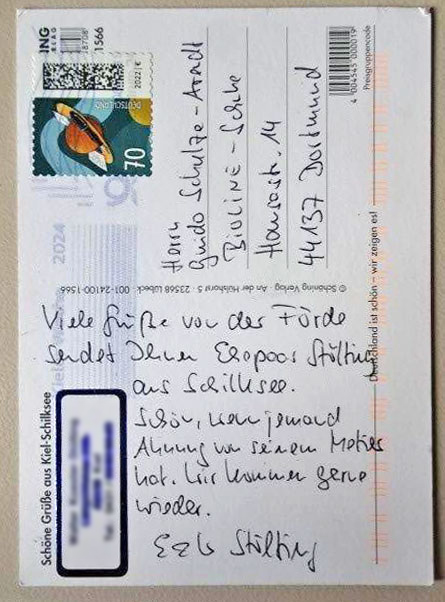 Schöne Grüße aus Kiel-Schilksee
Viele Grüße von der Förde
sendet Ihnen Ehepaar Stölting
aus Schilksee.
Schön, wenn jemand
Ahnung von seinem Metier
hat. Wir kommen gerne
wieder.
E & G Stölting
© Schöning Verlag · An der Hülshorst 5 · 23568 Lübeck · 001-24100-1566
2024
DEUTSCHLAND
70
2022 | €
1566
Herrn
Guido Schulze-Arndt
BIOLINE-Schuhe
Hansastr. 14
44137 Dortmund
4 004545 000019
Preisgruppencode
Deutschland ist schön – wir zeigen es!